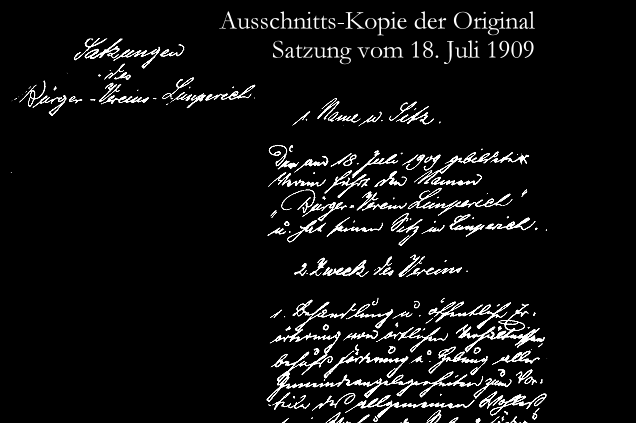 Ausschnitts-Kopie der Original
Satzung vom 18. Juli 1909
Satzungen
des
Bürger-Vereins-Limperich.
1. Name u. Sitz.
Der am 18. Juli 1909 gebildete
Verein führt den Namen
„Bürger-Verein Limperich"
u. hat seinen Sitz in Limperich.
2. Zweck des Vereins.
1. Behandlung u. öffentliche Er-
örterung von örtlichen Verhältnissen,
behufs Förderung u. Hebung aller
Gemeindeangelegenheiten zum Vor-
teile des allgemeinen Wohles